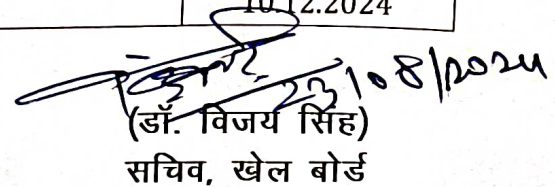 10.12.2024
23/08/2024
(डॉ. विजय सिंह)
सचिव, खेल बोर्ड